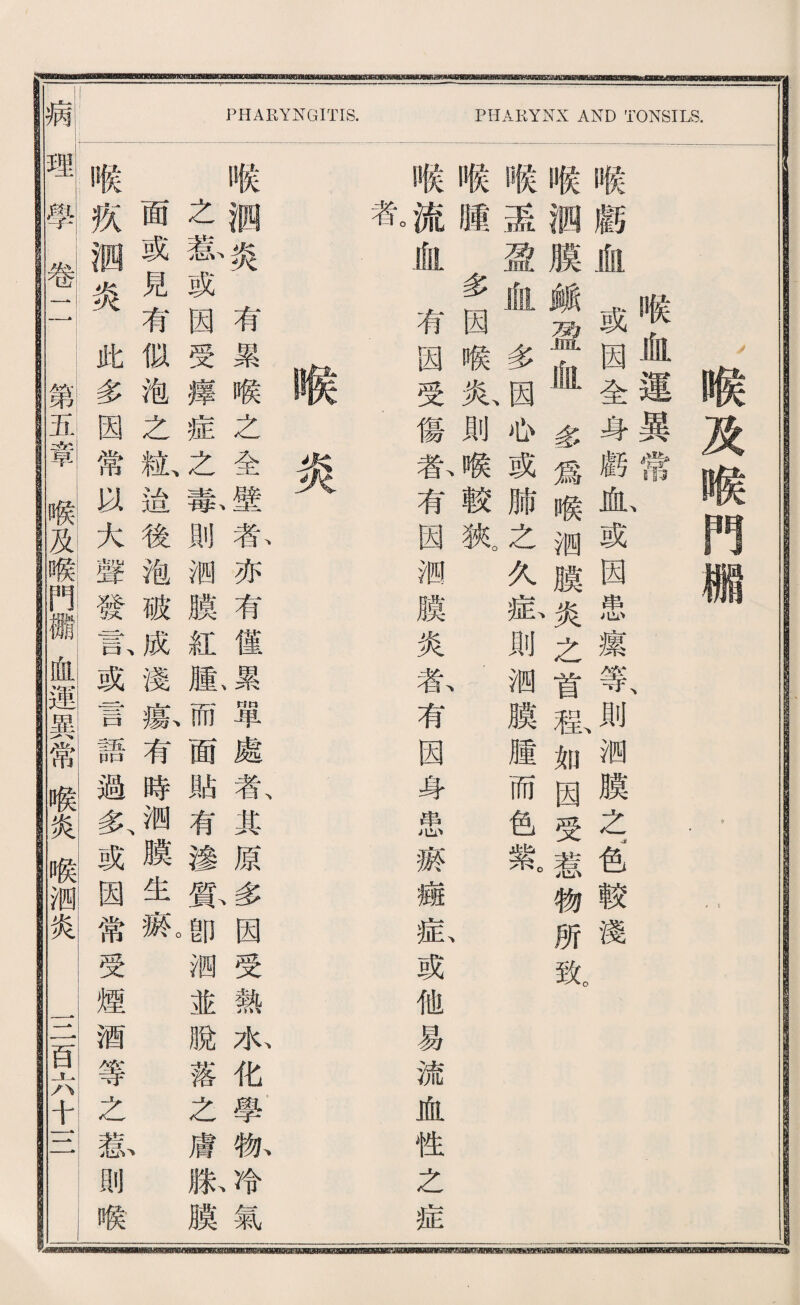 PHARYNGITIS.
PHARYNX AND TONSILS.
喉及喉門榍
喉血運異常
喉虧血　或因全身虧血、或因患瘰等、則泗膜之色較淺
喉泗膜鱖盈血　多爲喉泗膜炎之首程、如因受惹物所致。
喉衋盈血　多因心或肺之久症、則泗膜腫而色紫。
喉腫　多因喉炎、則喉較狹。
喉流血　有因受傷者、有因泗膜炎者、有因身患瘀癍症、或他易流血性之症
者。
喉炎
喉泗炎　有累喉之全壁者、亦有僅累單處者、其原多因受熱水、化學物、冷氣
之惹、或因受瘴症之毒、則泗膜紅腫、而面貼有滲質、卽泗並脫落之膚膎、膜
面或見有似泡之粒、迨後泡破成淺瘍、有時泗膜生瘀。
喉疚泗炎　此多因常以大聲發言、或言語過多、或因常受煙酒等之惹、則喉
病理學　卷二　第五章　喉及喉門榍　血運異常　喉炎　喉泗炎　三百六十三